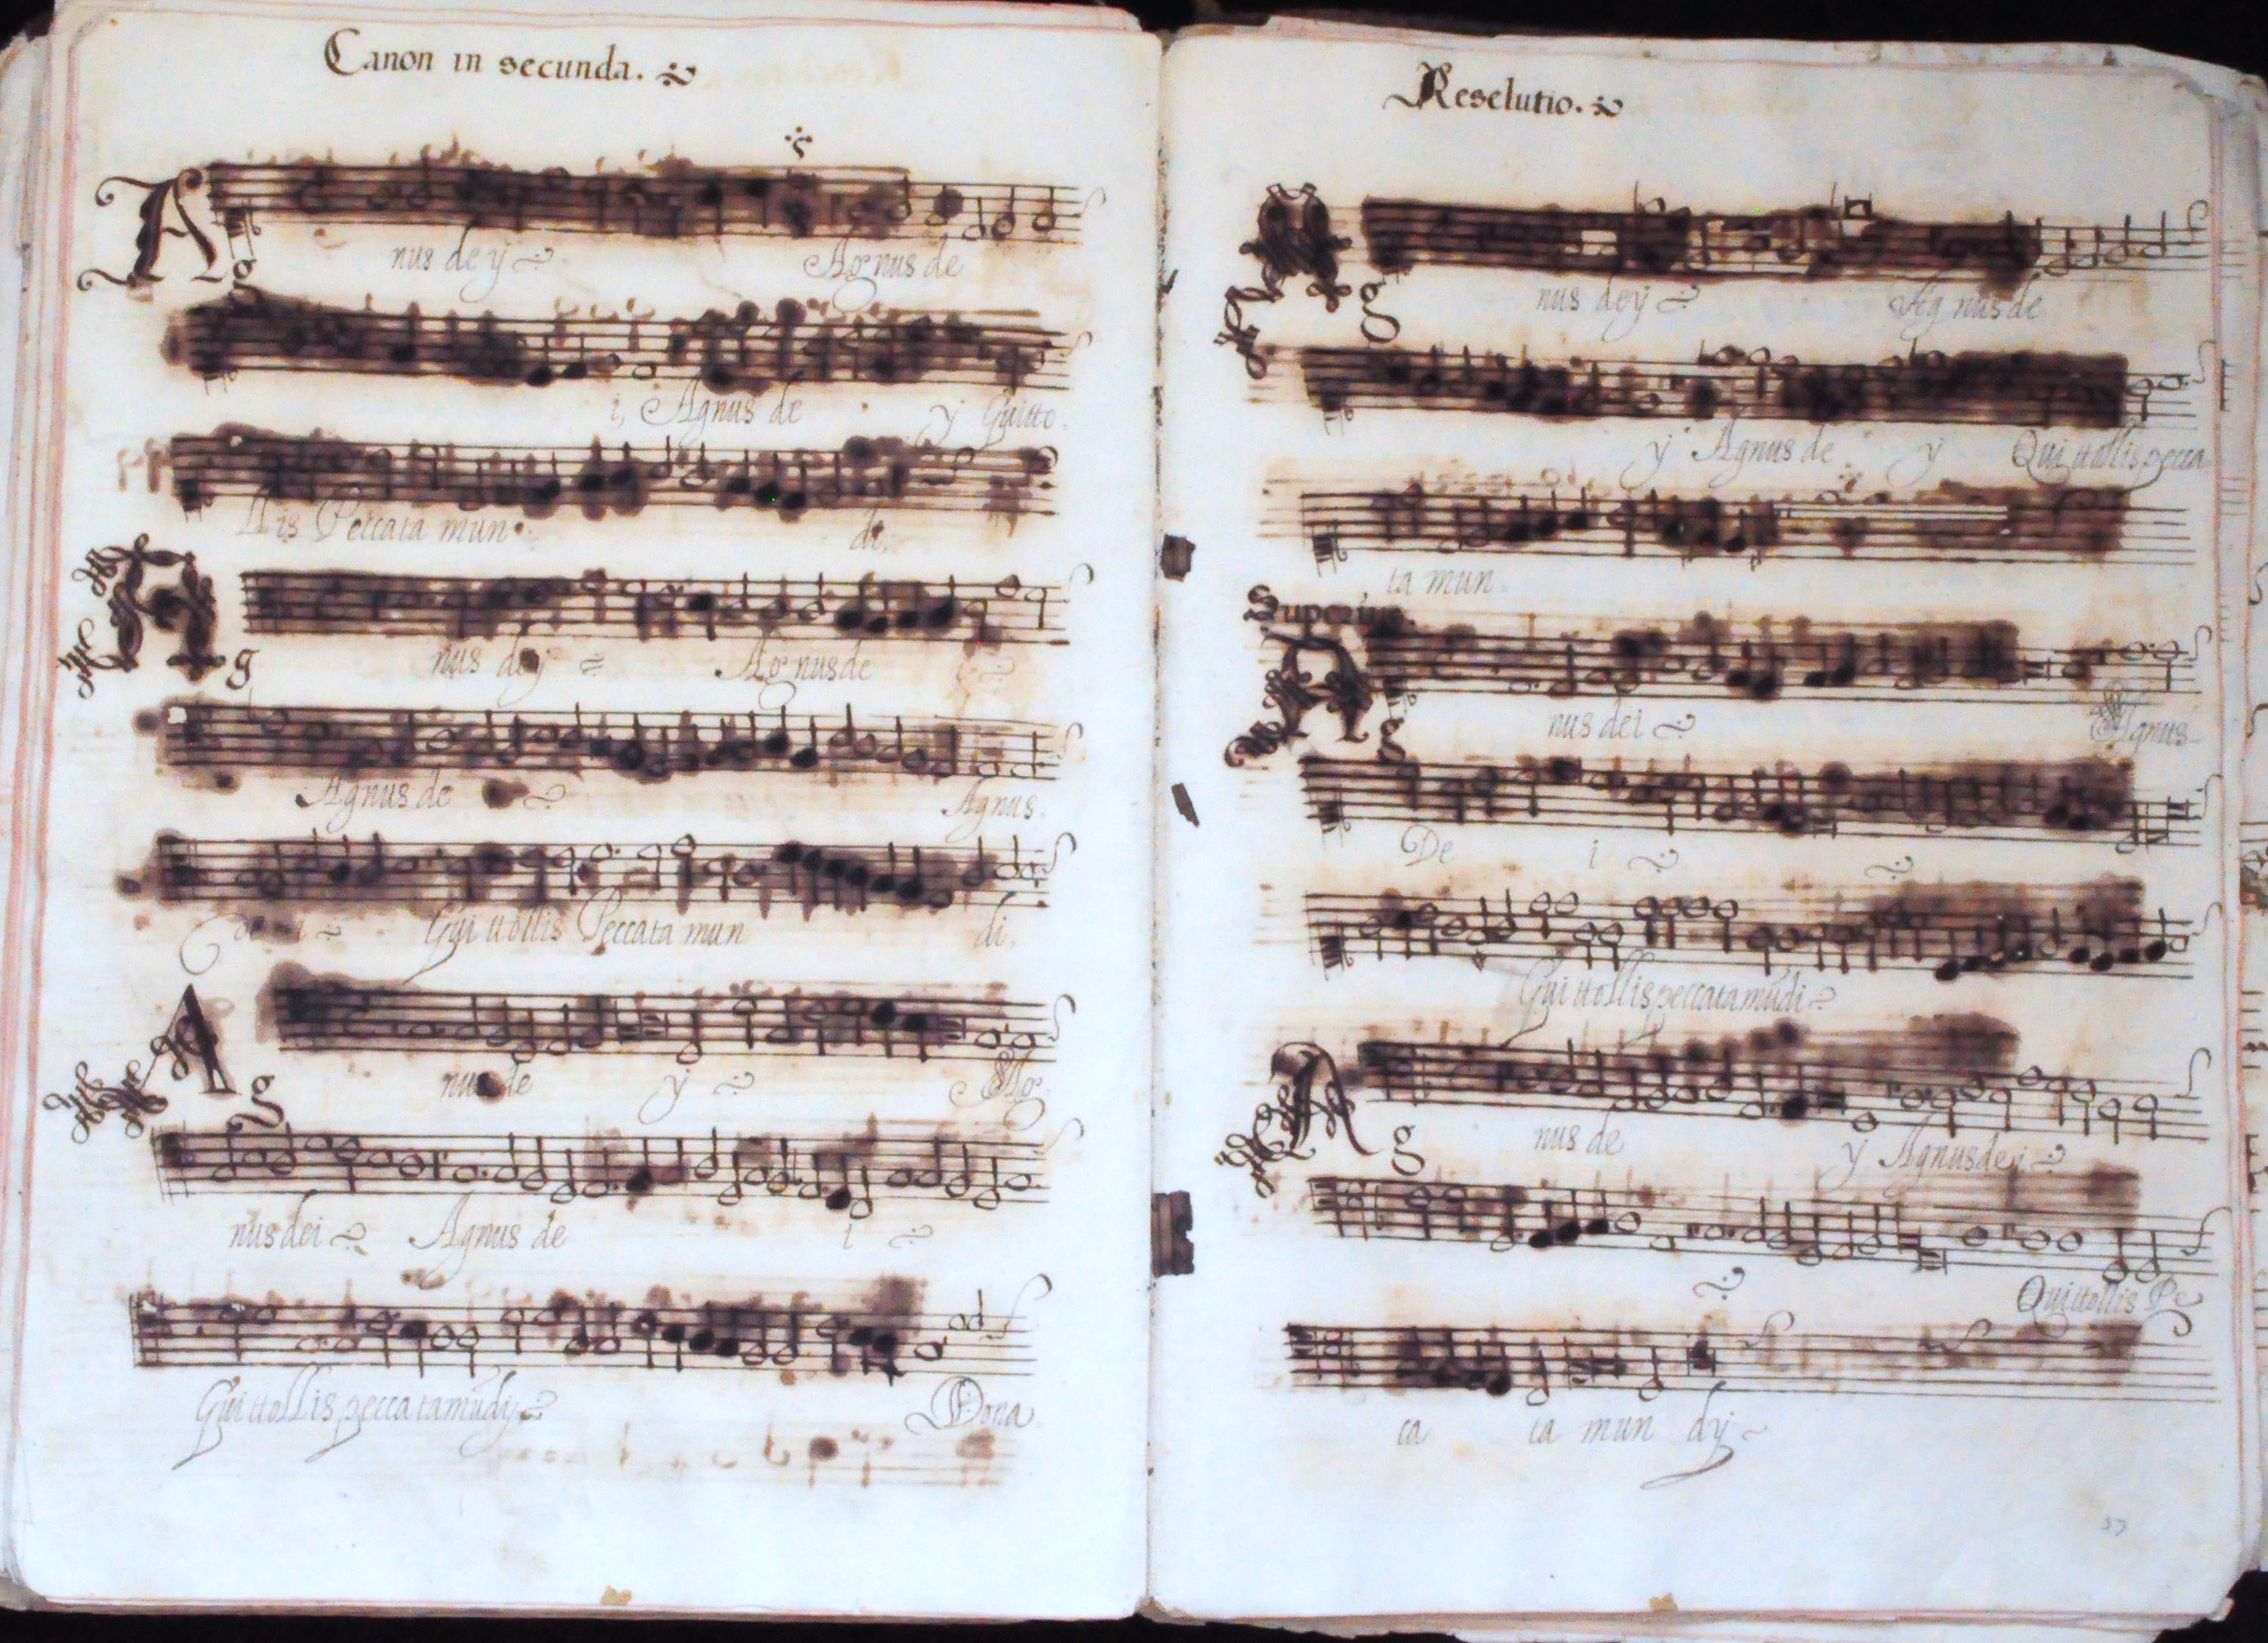 Canon in secunda.
A g nus de y Agnus de
i, Agnus de y Quitto
llis Peccata mun di,
A g nus dey Agnus de
Agnus de Agnus
de i Qui ttollis Peccata mun di,
A g nus de y Ag
nus dei Agnus de i
Qui ttollis pecca ta mūdy Dona
Reselutio.
A g nus dey Ag nus de
y Agnus de y Qui ttollis pecca
ta mun
Superius
A g nus dei Agnus
De i
Qui ttollis peccata mūdi
A g nus de y Agnus dei
Qui ttollis Pe
ca ta mun dy